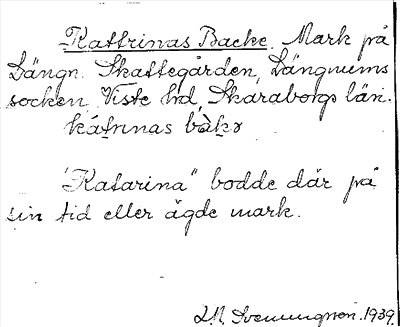 Kattrinas Backe. Mark på
Längn. Skattegården, Längnums
socken, Viste hd, Skaraborgs län.
kátrinnas bàkə
"Katarina" bodde där på
sin tid eller ägde mark.
1939.